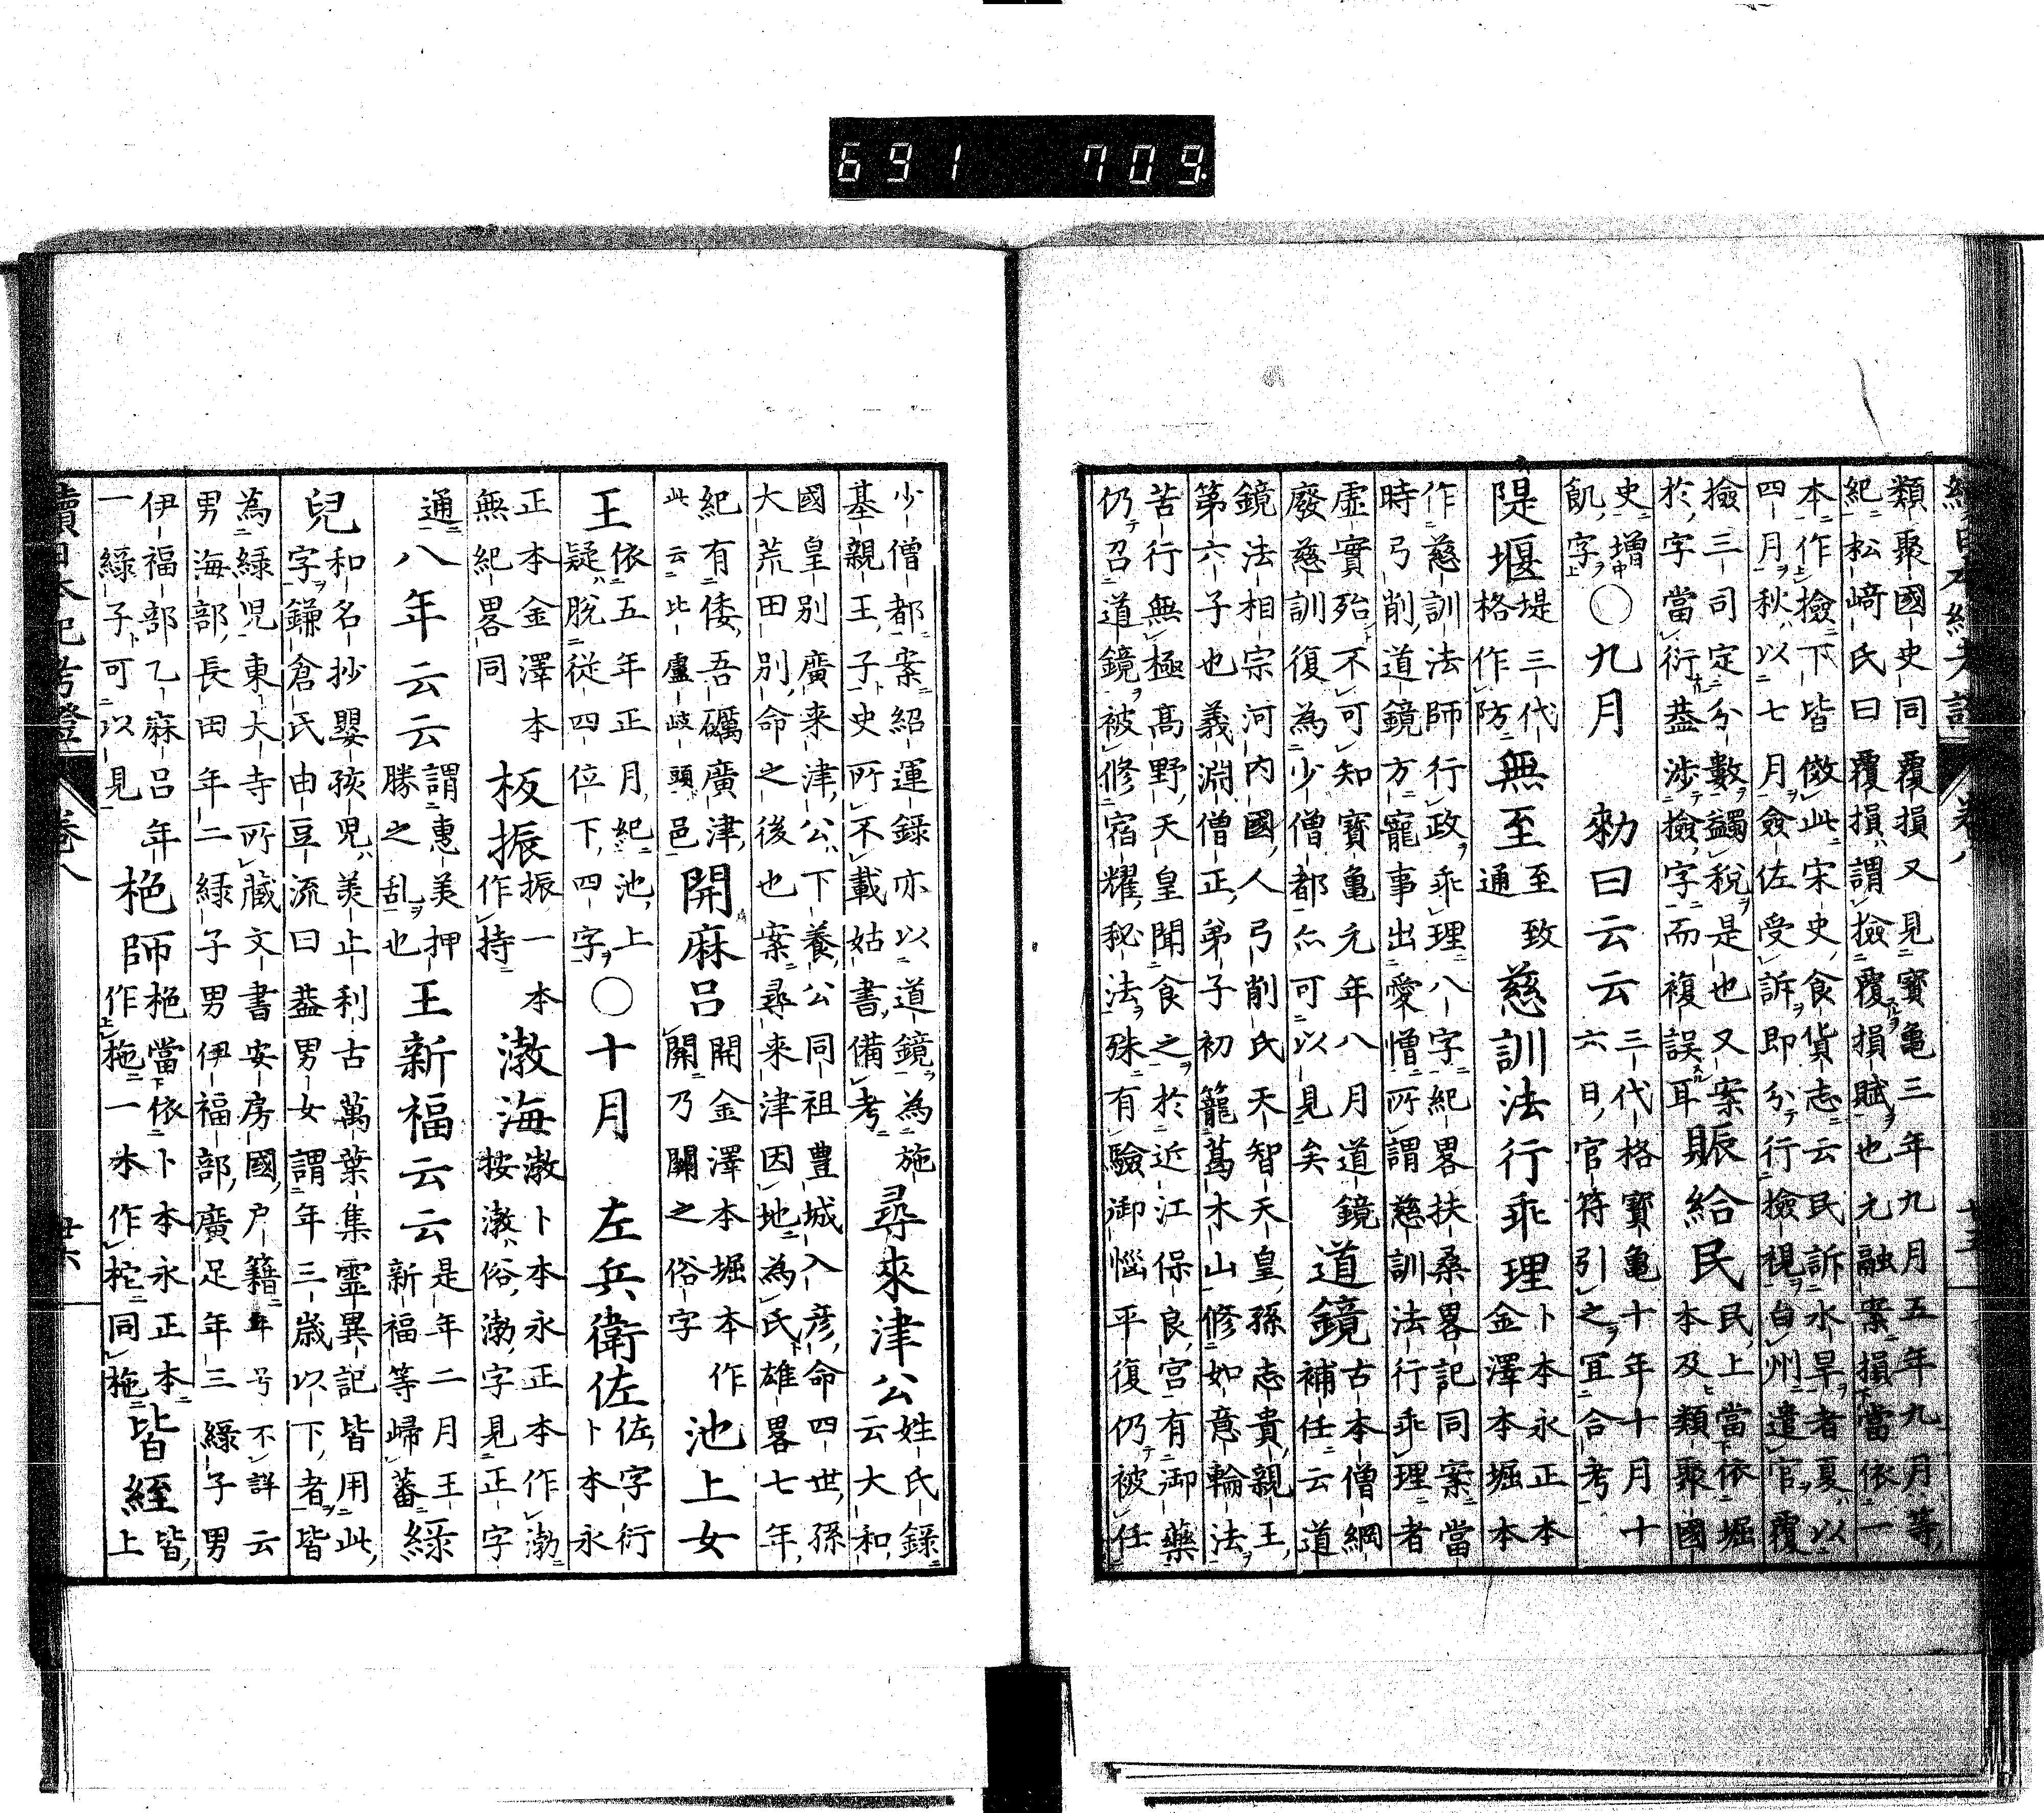 691 709.
類聚國史同覆損又見寶龜三年九月五年九月等
紀松﨑氏曰覆損謂撿覆損賦也允融案損當依一
本作撿下皆倣此宋史食貨志云民訴水旱者夏以
四月秋以七月僉佐受訴即分行撿視白州遣官覆
撿三司定分數蠲税是也又案
於字當衍葢涉撿字而複誤耳
賑給民
民上當依堀
本及類聚國
史増
飢字
○九月
勑曰云云
三代格寶龜十年十月十
六日官符引之宜合考
隄堰
堤三代
格作防
無至
至致
通
慈訓法行乖理
卜本永正本
金澤本堀本
作慈訓法師行政乖理八字紀畧扶桑畧記同案當
時弓削道鏡方寵事出愛憎所謂慈訓法行乖理者
虚實殆不可知寶龜元年八月道鏡
廢慈訓復為少僧都亦可以見矣
道鏡
古本僧綱
補任云道
鏡法相宗河内國人弓削氏天智天皇孫志貴親王
第六子也義淵僧正弟子初籠葛木山修如意輪法
苦行無極髙野天皇聞食之於近江保良宮有御藥
仍召道鏡被修宿耀秘法殊有驗御惱平復仍被任
少僧都案紹運録亦以道鏡為施
基親王子史所不載姑書備考
尋來津公
姓氏録
云大和
國皇別廣来津公下養公同祖豊城入彦命四世孫
大荒田別命之後也案尋来津因地為氏雄畧七年
紀有倭吾礪廣津
此云比盧岐頭邑
開麻呂
開金澤本堀本作
關乃關之俗字
池上女
王
依五年正月紀池上
疑脱從四位下四字
○十月
左兵衛佐
佐字衍
卜本永
正本金澤本
無紀畧同
板振
振一本
作持
渤海
渤卜本永正本作渤
按渤俗渤字見正字
通
八年云云
謂惠美押
勝之乱也
王新福云云
是年二月王
新福等歸蕃
緑
兒
和名抄嬰孩児美止利古萬葉集霊異記皆用此
字鎌倉氏由豆流曰葢男女謂年三歳以下者皆
為緑児東大寺所藏文書安房國戸籍年号不詳云
男海部長田年二緑子男伊福部廣足年三緑子男
伊福部乙麻呂年
一緑子可以見
杝師
杝當依卜本永正本
作柂一本作柁同柂
皆經
皆
上